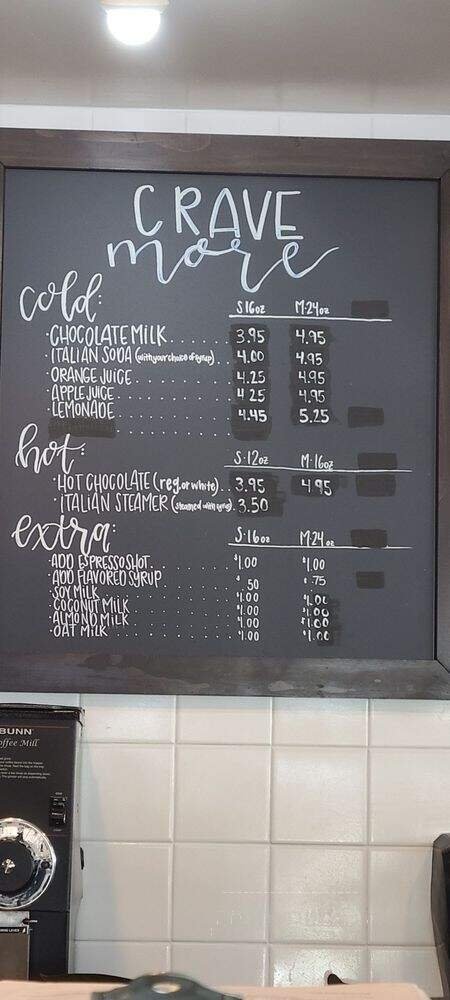 CRAVE
more
cold:
S·16oz M·24oz
·CHOCOLATE MILK......3.95 4.95
·ITALIAN SODA (with your choice of syrup)..4.00 4.95
·ORANGE JUICE..........4.25 4.95
·APPLE JUICE............4.25 4.95
·LEMONADE............4.45 5.25
hot:
S·12oz M·16oz
·HOT CHOCOLATE (reg. or white)..3.95 4.95
·ITALIAN STEAMER (steamed with syrup).3.50
extra:
S·16oz M·24oz
·ADD ESPRESSO SHOT........$1.00 $1.00
·ADD FLAVORED SYRUP........$.50 $.75
·SOY MILK............$1.00 $1.00
·COCONUT MILK........$1.00 $1.00
·ALMOND MILK........$1.00 $1.00
·OAT MILK............$1.00 $1.00
BUNN
Coffee Mill